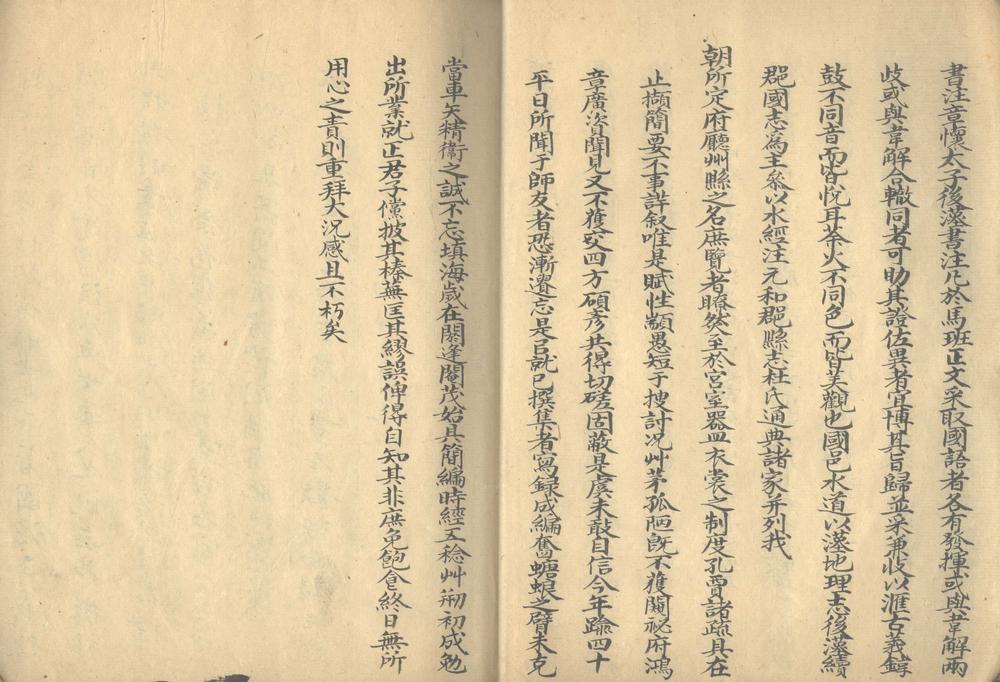 書注章懷太子後漢書注凡於馬班正文采取國語者各有發揮或與韋解兩
歧或與韋解合轍同者可助其證佐異者宜博其旨歸並采兼收以滙古義錞
鼓不同音而皆悅耳荼火不同色而皆美觀也國邑水道以漢地理志後漢續
郡國志為主叅以水經注元和郡縣志杜氏通典諸家并列我
朝所定府廳州縣之名庶覽者瞭然至於宮室器皿衣裳之制度孔賈諸疏具在
止擷簡要不事詳叙唯是賦性顓愚短于搜討况艸茅孤陋既不獲闚祕府鴻
章廣資聞見又不獲交四方碩彥共得切磋固蔽是虞未敢自信今年踰四十
平日所聞于師友者恐漸遺忘是㠯就已撰集者寫録成編奮螗蜋之臂未克
當車矢精衛之誠不忘填海歲在閼逢閹茂始具簡編時經五稔艸剏初成勉
出所業就正君子儻披其榛蕪匡其繆誤俾得自知其非庶免飽食終日無所
用心之責則重拜大况感且不朽矣